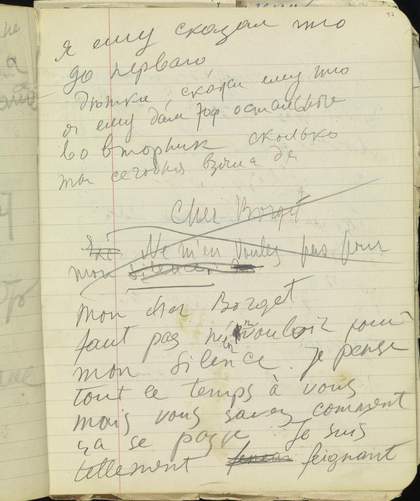 я ему сказал что
до первого
Дютки скажи ему что
я ему дам 70ф остальные
во вторник сколько
ты сегодня взяла де
Cher Borget
Ne m'en voulez pas pour
mon silence
Mon cher Borget
faut pas m'en vouloir pour
mon silence. je pense
tout le temps à vous
mais vous savez comment
ça se passe Je suis
tellement feignant